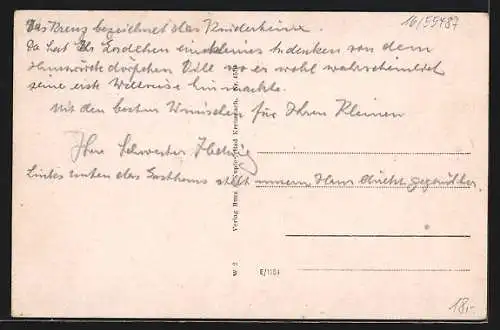 16/55487
Das Kreuz bezeichnet das Kinderheim.
Da hat Ihr Söhnchen ein kleines Andenken von dem
dörfchen Vill wo er wohl wahrscheinlich
seine erste Weltreise hin machte.
Mit den besten Wünschen für Ihren Kleinen
Ihre Schwester
Links unten das Gasthaus steht unserm Haus direkt gegenüber.
Kreuznach. Nr.
Verlag
W 2
E/1101
18,-